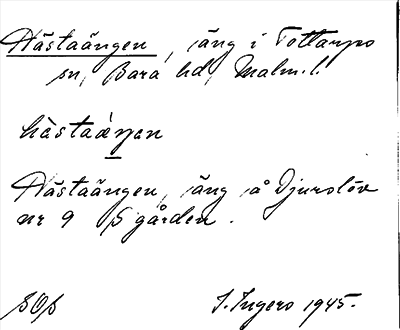 Hästaängen, äng i Tottarps
sn, Bara hd, Malm. l.
hàstaáŋen
Hästaängen, äng å Djurslöv
nr 9
gården.
I. Ingers 1945.